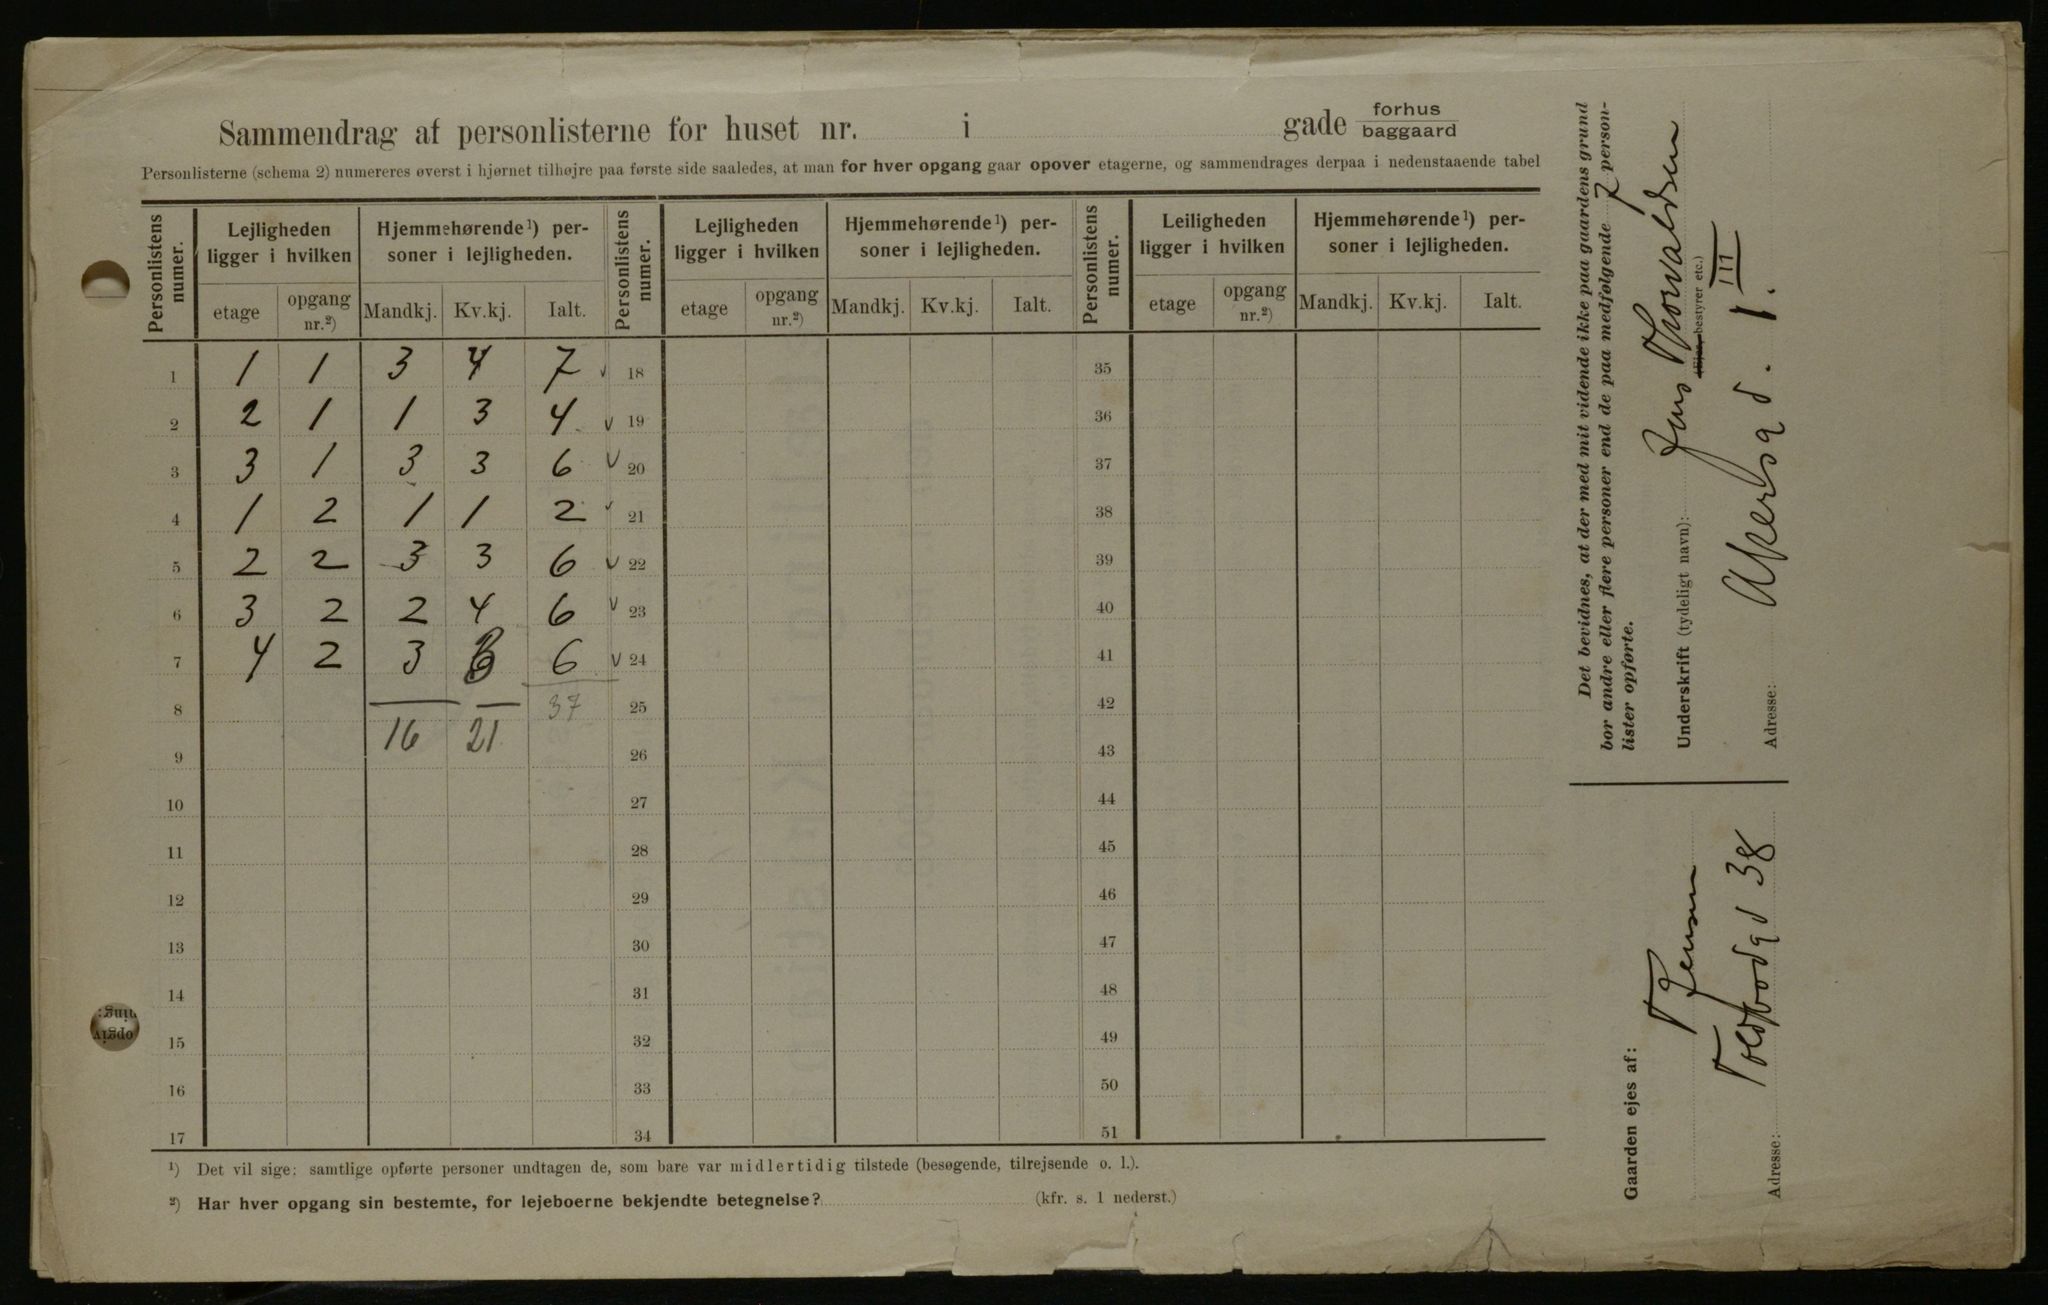 Sammendrag af personlisterne for huset nr. i gade forhus baggaard
Personlisterne (schema 2) numereres øverst i hjørnet tilhøjre paa første side saaledes, at man for hver opgang gaar opover etagerne, og sammendrages derpaa i nedenstaaende tabel
Personlistens numer. Lejligheden ligger i hvilken Hjemmehørende ¹) personer i lejligheden. Personlistens numer. Lejligheden ligger i hvilken Hjemmehørende ¹) personer i lejligheden. Personlistens numer. Leiligheden ligger i hvilken Hjemmehørende ¹) personer i lejligheden.
etage opgang nr.²) Mandkj. Kv.kj. Ialt. etage opgang nr.²) Mandkj. Kv.kj. Ialt. etage opgang nr.²) Mandkj. Kv.kj. Ialt.
1 1 1 3 4 7 v 18 35
2 2 1 1 3 4 v 19 36
3 3 1 3 3 6 v 20 37
4 1 2 1 1 2 v 21 38
5 2 2 3 3 6 v 22 39
6 3 2 2 4 6 v 23 40
7 4 2 3 3 6 v 24 41
8 37 25 42
9 16 21 26 43
10 27 44
11 28 45
12 29 46
13 30 47
14 31 48
15 32 49
16 33 50
17 34 51
¹) Det vil sige: samtlige opførte personer undtagen de, som bare var midlertidig tilstede (besøgende, tilrejsende o. l.).
²) Har hver opgang sin bestemte, for lejeboerne bekjendte betegnelse? (kfr. s. 1 nederst.)
Det bevidnes, at der med mit vidende ikke paa gaardens grund
bor andre eller flere personer end de paa medfølgende 7 person-
lister opførte.
Underskrift (tydeligt navn): Jens Thorvaldsen
(Ejer, bestyrer etc.)
Adresse: Akersgd. 1. III
Gaarden ejes af: T Jensen
Adresse: Toldbodgd 38
opgiv
ning: